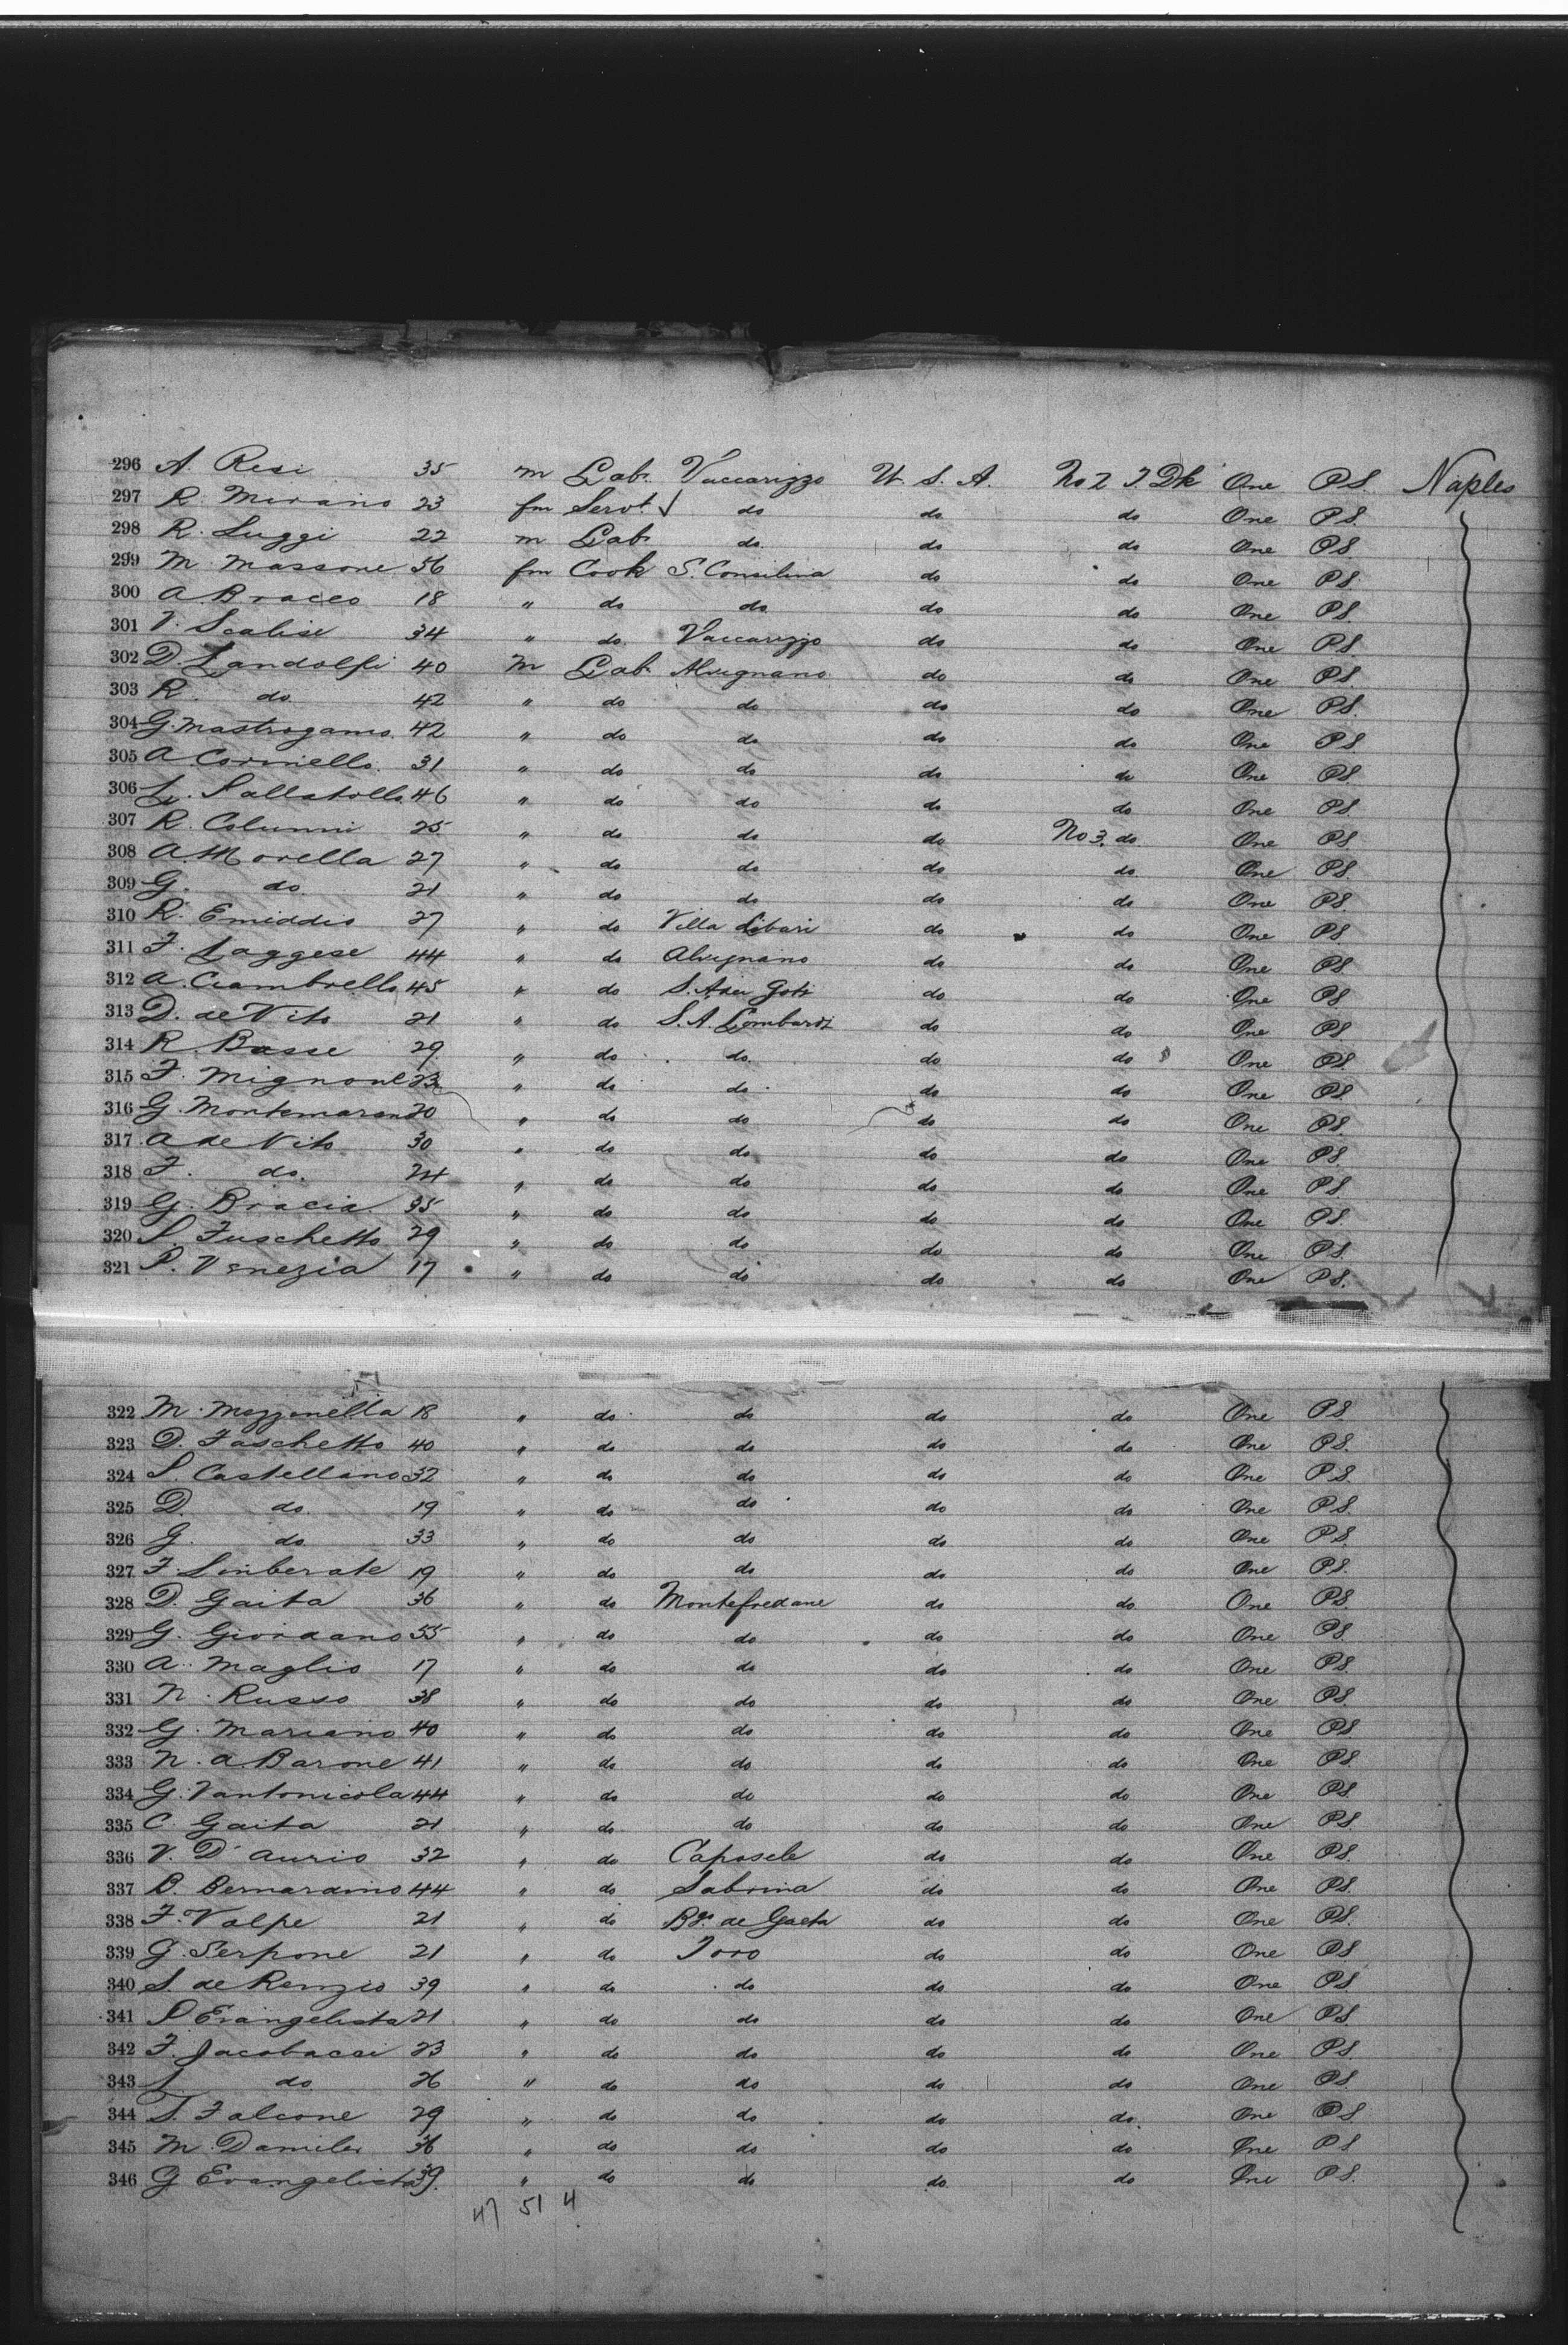 296 A. Resi 35 m Lab. Vaccarizzo U. S. A. No 2 T. Dk One P.S. Naples
297 R. Morano 23 fm Servt. √ do do do One P.S.
298 R. Luggi 22 m Lab. do do do One P.S.
299 M. Massone 56 fm Cook S. Consilina do do One P.S.
300 A. Bracco 18 " do do do do One P.S.
301 V. Scalise 34 " do Vaccarizzo do do One P.S.
302 D. Landolfi 40 m Lab. Alvignano do do One P.S.
303 R. do 42 " do do do do One P.S.
304 G. Mastrogamo 42 " do do do do One P.S.
305 A. Corniello 31 " do do do do One P.S.
306 L. Sallatollo 46 " do do do do One P.S.
307 R. Columni 25 " do do do No 3. do One P.S.
308 A. Morella 27 " do do do do One P.S.
309 G. do 21 " do do do do One P.S.
310 R. Emiddio 27 " do Villa Libari do do One P.S.
311 F. Laggese 44 " do Alvignano do do One P.S.
312 A. Ciambrello 45 " do S. A dei Goti do do One P.S.
313 D. de Vito 21 " do S. A. Lombardi do do One P.S.
314 R. Basse 29 " do do do do One P.S.
315 F. Mignone 23 " do do do do One P.S.
316 G. Montemaran 20 " do do do do One P.S.
317 A de Vito 30 " do do do do One P.S.
318 F. do. 24 " do do do do One P.S.
319 G. Bracia 35 " do do do do One P.S.
320 S. Fuschetto 29 " do do do do One P.S.
321 P. Venezia 17 " do do do do One P.S.
322 M. Mezzinella 18 " do do do do One P.S.
323 D. Faschetto 40 " do do do do One P.S.
324 S. Castellano 32 " do do do do One P.S.
325 D. do 19 " do do do do One P.S.
326 G. do 33 " do do do do One P.S.
327 F. Sinberate 19 " do do do do One P.S.
328 D. Gaita 36 " do Montefredane do do One P.S.
329 G. Giordano 55 " do do do do One P.S.
330 A. Maglio 17 " do do do do One P.S.
331 N. Russo 38 " do do do do One P.S.
332 G. Mariano 40 " do do do do One P.S.
333 N. A Barone 41 " do do do do One P.S.
334 G. Vantonicola 44 " do do do do One P.S.
335 C. Gaita 21 " do do do do One P.S.
336 V. D'Aurio 32 " do Caposele do do One P.S.
337 B. Bernardino 44 " do Sabrina do do One P.S.
338 F. Volpe 21 " do Bgo de Gaeta do do One P.S.
339 G. Serpone 21 " do Toro do do One P.S.
340 S. de Renzio 39 " do do do do One P.S.
341 P Evangelista 21 " do do do do One P.S.
342 F. Jacobacci 23 " do do do do One P.S.
343 do 26 " do do do do One P.S.
344 T. Falcone 29 " do do do do One P.S.
345 M. Damiler 36 " do do do do One P.S.
346 G Evangelista 39. " do do do do One P.S.
47 51 4